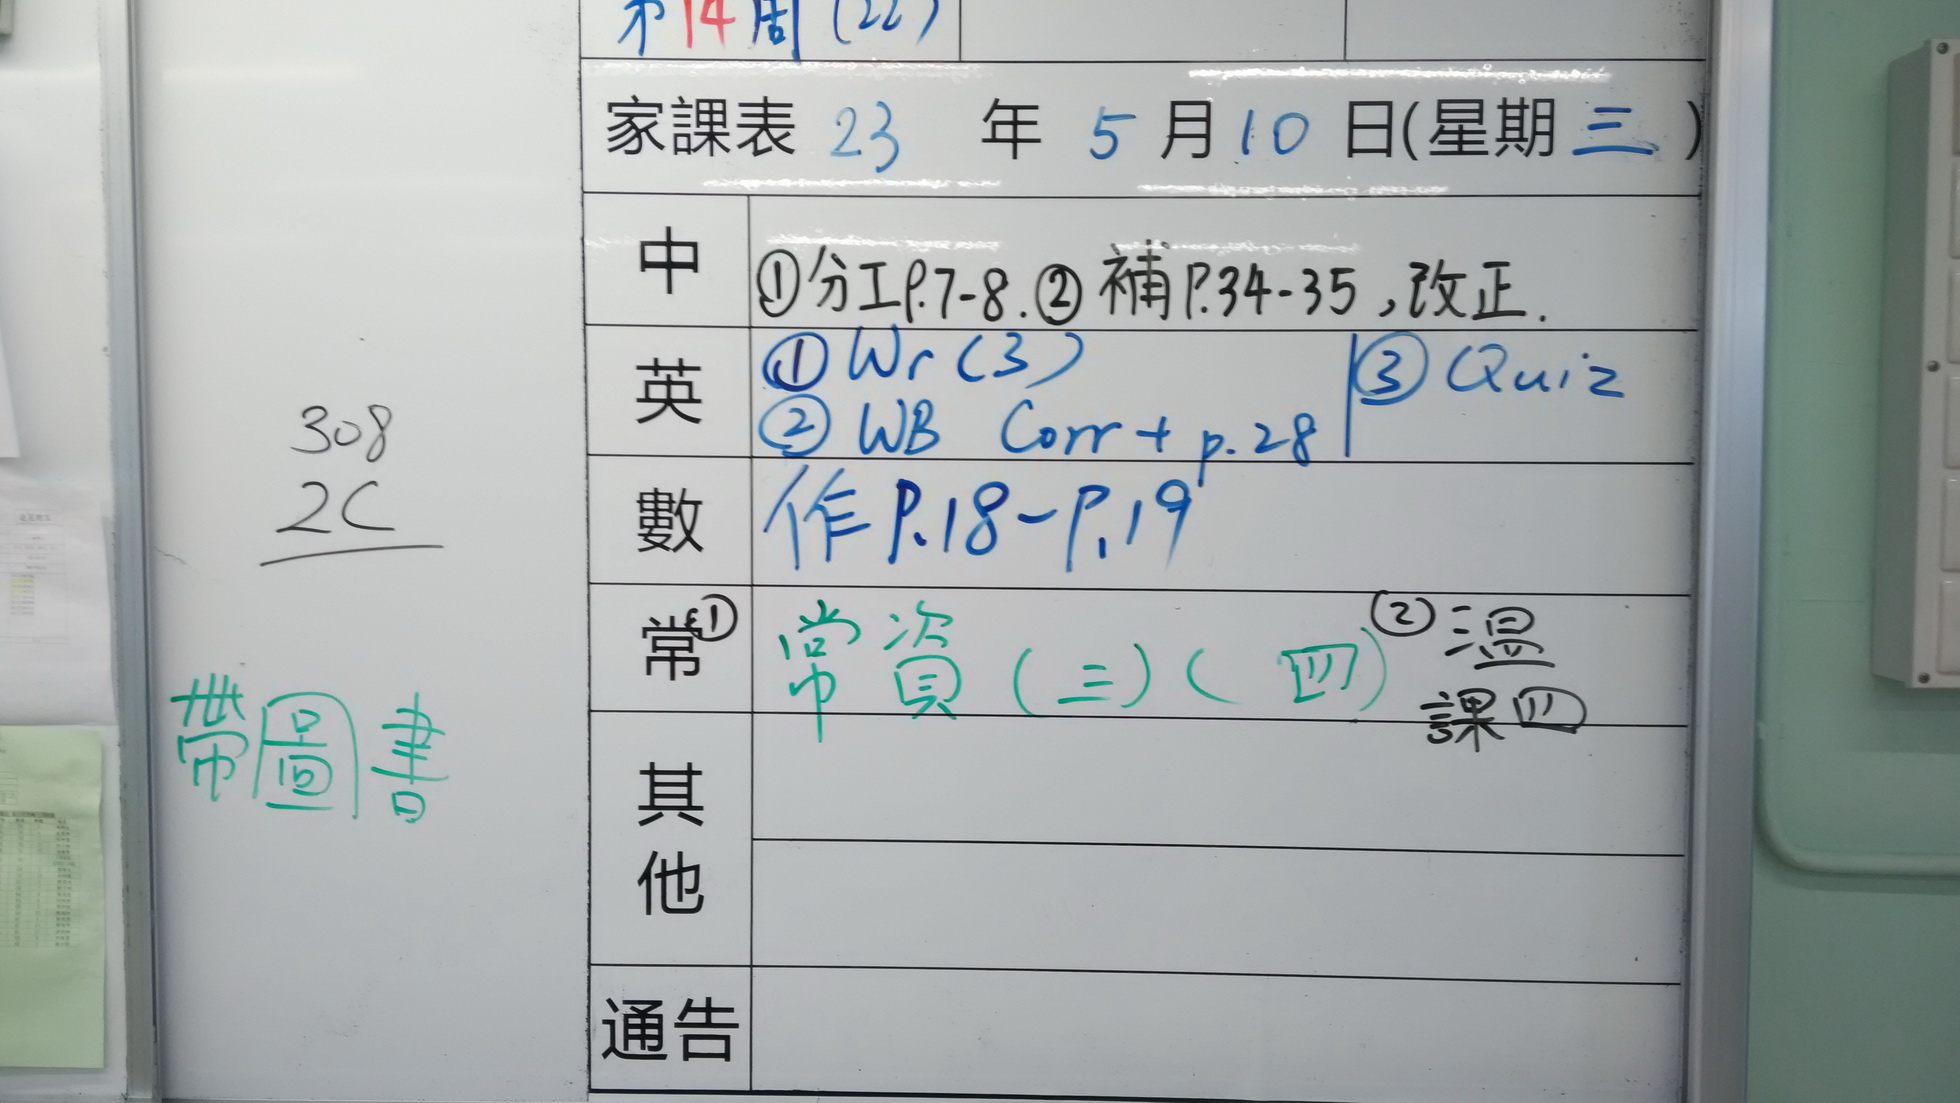 第14周(22)
家課表 23 年 5 月 10 日(星期 三 )
中 ①分工P.7-8.②補P.34-35,改正.
英 ①Wr(3) ③Quiz
②WB Corr + p.28
數 作P.18-P.19
常 ① 常資(三)(四) ②溫
課四
其他
通告
308
2C
帶圖書